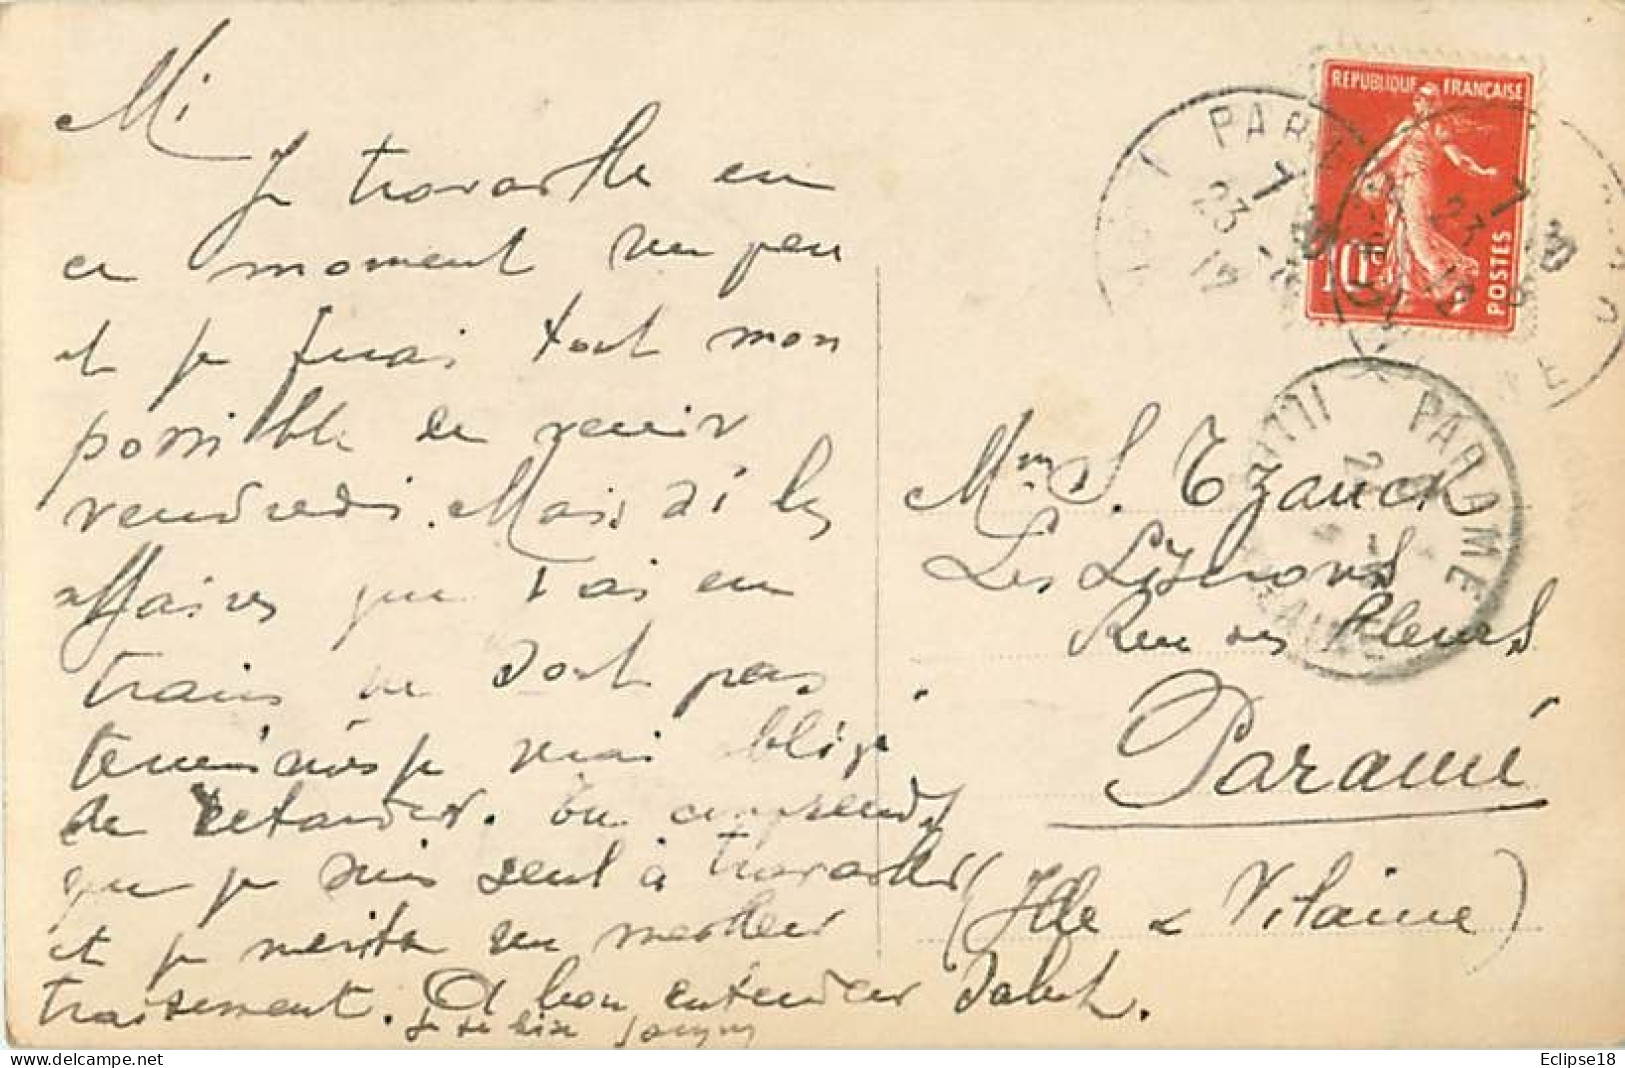 Mi
Je travaille en
ce moment un peu
et je ferai tout mon
possible de venir
vendredi. Mais si les
affaires que j'ai en
train ne sont pas
terminées je serai obligé
de retarder. Tu comprends
que je suis seul à travailler
et je mérite un meilleur
traitement. A bon entendeur salut.
Je te bise
REPUBLIQUE FRANÇAISE
10c
POSTES
PARIS
7
23
PARAMÉ
Mme S. Tzanck
Les Liserons
Rue des Fleurs
Paramé
(Ille & Vilaine)
Eclipse18